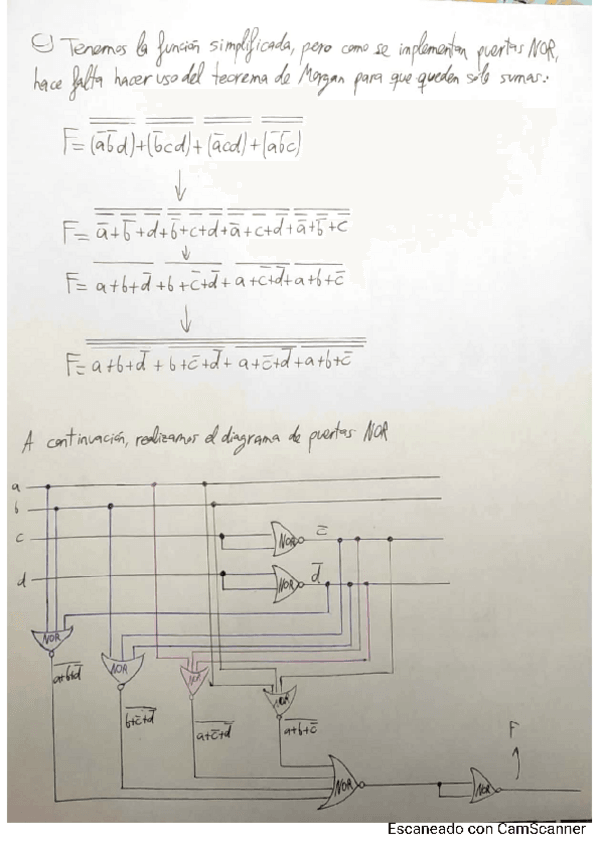 c) Tenemos la función simplificada, pero como se implementan puertas NOR,
hace falta hacer uso del teorema de Morgan para que queden sólo sumas:
F= (a̅b̅d)+(b̅cd)+(a̅cd)+(a̅b̅c)
F= a̅+b̅+d+b̅+c+d+a̅+c+d+a̅+b̅+c
F= a+b+d̅+b+c̅+d̅+a+c̅+d̅+a+b+c̅
F= a+b+d̅+b+c̅+d̅+a+c̅+d̅+a+b+c̅
A continuación, realizamos el diagrama de puertas NOR
a
b
c NOR c̅
d NOR d̅
NOR NOR NOR NOR
a+b+d̅ b+c̅+d̅ a+c̅+d̅ a+b+c̅
F
NOR NOR
Escaneado con CamScanner